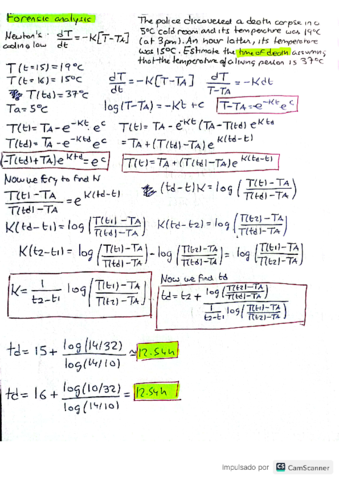 Forensic analysis
The police discovered a death corpse in a
5°C cold room and its temperature was 19°C
(at 3pm). An hour latter, its temperature
was 15°C. Estimate the time of death assuming
that the temperature of a living person is 37°C
Newton's cooling law dT/dt = -K[T-TA]
T(t=15)=19°C
T(t=16)=15°C
T(td)=37°C
Ta=5°C
dT/dt = -K[T-TA] dT/T-TA = -Kdt
log(T-TA) = -Kt+c T-TA = e^-Kt e^c
T(t) = TA - e^-Kt · e^c T(t) = TA - e^-Kt (TA - T(td) e^Ktd
T(td) = TA - e^-Ktd e^c = TA + (T(td)-TA) e^K(td-t)
(-T(td)+TA) e^Ktd = e^c T(t) = TA + (T(td)-TA) e^K(td-t)
Now we try to find K
T(t)-TA/T(td)-TA = e^K(td-t) (td-t)K = log(T(t)-TA/T(td)-TA)
K(td-t1) = log(T(t1)-TA/T(td)-TA) K(td-t2) = log(T(t2)-TA/T(td)-TA)
K(t2-t1) = log(T(t1)-TA/T(td)-TA) - log(T(t2)-TA/T(td)-TA) = log(T(t1)-TA/T(t2)-TA)
K = 1/t2-t1 log(T(t1)-TA/T(t2)-TA)
Now we find td
td = t2 + log(T(t2)-TA/T(td)-TA) / 1/t2-t1 log(T(t1)-TA/T(t2)-TA)
td = 15 + log(14/32)/log(14/10) ≈ 12.54h
td = 16 + log(10/32)/log(14/10) = 12.54h
Impulsado por CS CamScanner